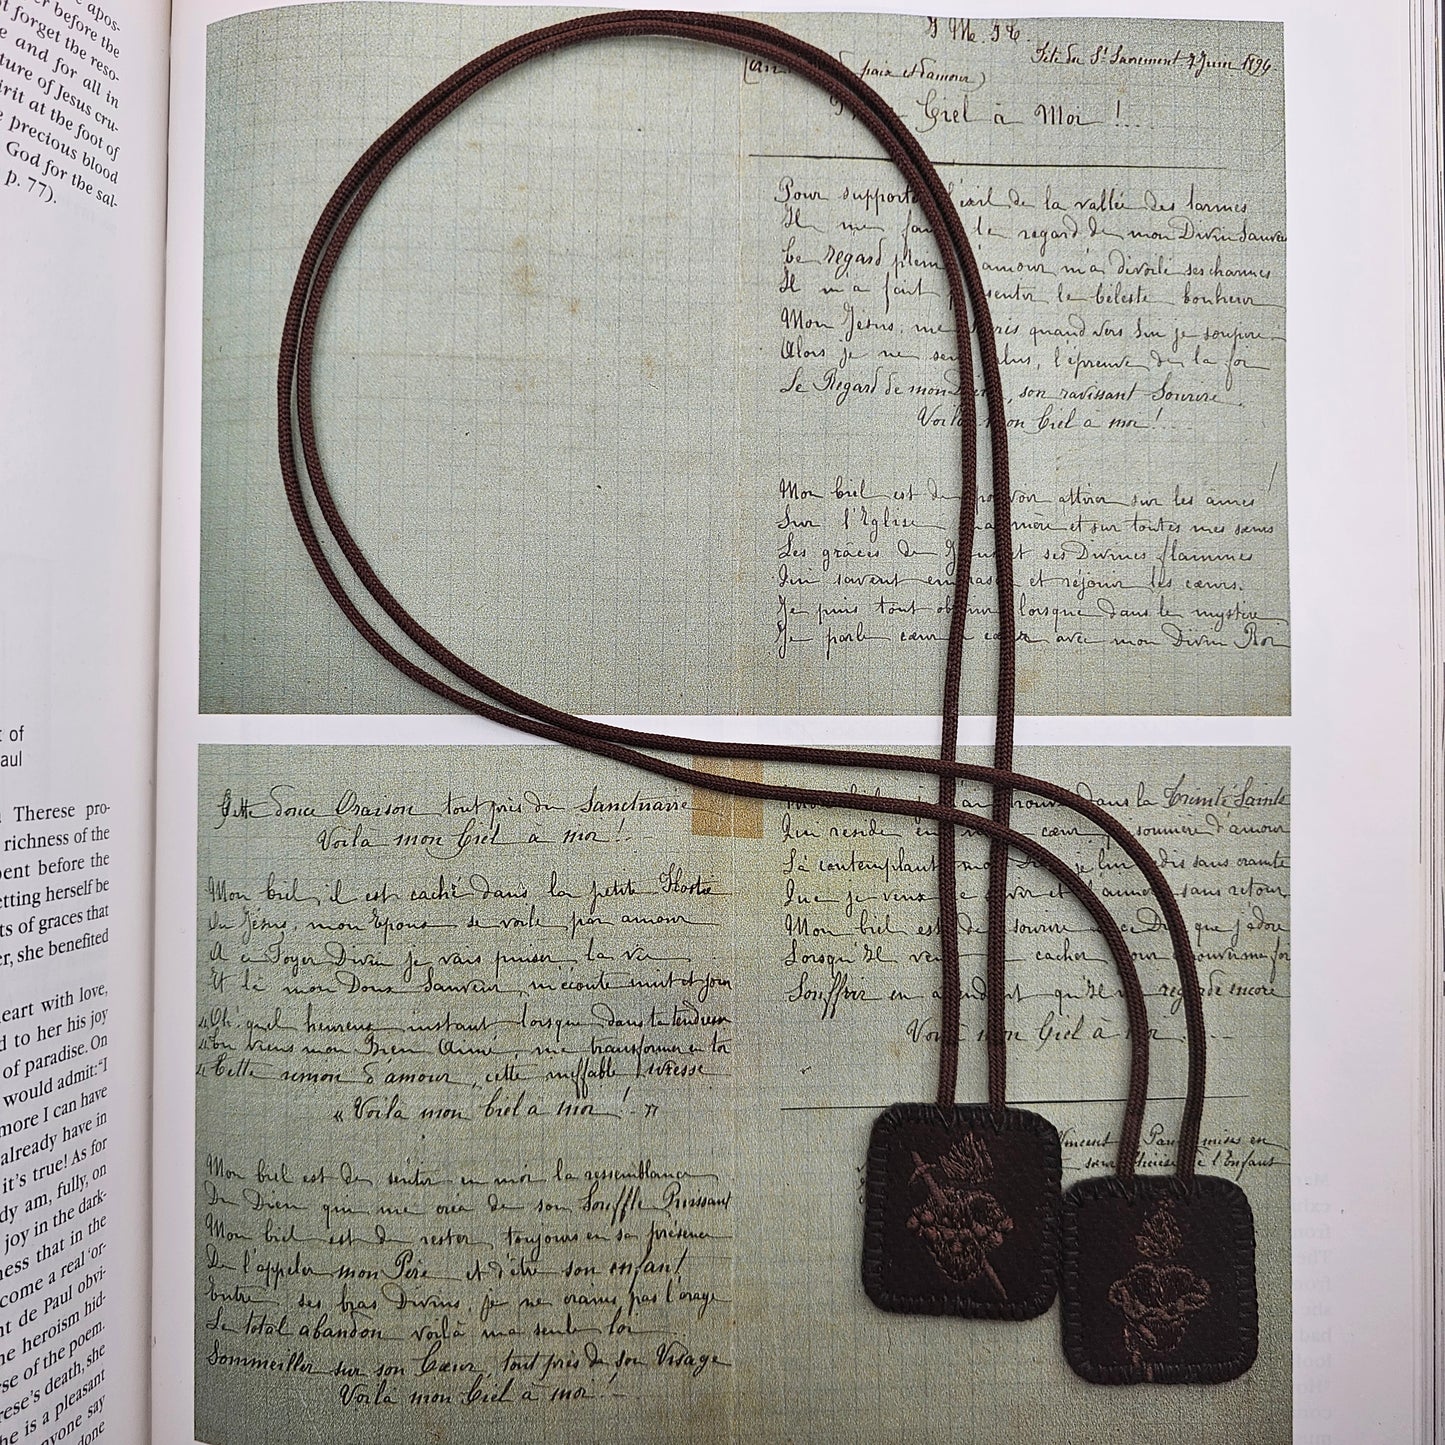 apos-
before the
forget the reso-
and for all in
ture of Jesus cru-
irit at the foot of
precious blood
God for the sal-
p. 77).
t of
aul
Therese pro-
richness of the
pent before the
etting herself be
ts of graces that
er, she benefited
eart with love,
d to her his joy
of paradise. On
would admit: "I
more I can have
already have in
it's true! As for
dy am, fully, on
joy in the dark-
ness that in the
come a real 'or-
nt de Paul obvi-
he heroism hid-
rse of the poem.
rese's death, she
he is a pleasant
nyone say
done
J. M. J. T.
Fête du St Sacrement 7 Juin 1896
paix et d'amour)
Ciel à Moi !...
Pour supporter l'exil de la vallée des larmes
Il me faut le regard de mon Divin Sauveur
Ce regard plein d'amour m'a dévoilé ses charmes
Il m'a fait pressentir le Céleste bonheur
Mon Jésus me souris quand vers Lui je soupire
Alors je ne sens plus l'épreuve de la foi
Le Regard de mon Dieu, son ravissant Sourire,
Voilà mon Ciel à moi !....
Mon Ciel est de pouvoir attirer sur les âmes
Sur l'Eglise ma mère et sur toutes mes sœurs
Les grâces de Jésus et ses Divines flammes
Qui savent embraser et réjouir les cœurs.
Je puis tout obtenir lorsque dans le mystère
Je parle cœur à cœur avec mon Divin Roi
Cette douce Oraison tout près du Sanctuaire
Voilà mon Ciel à moi !..
Mon Ciel, il est caché dans la petite Hostie
Où Jésus, mon Epoux se voile par amour
A ce Foyer Divin je vais puiser la vie
Et là mon Doux Sauveur m'écoute nuit et jour
"Oh! quel heureux instant lorsque dans ta tendresse
"Tu viens mon Bien-Aimé, me transformer en toi
"Cette union d'amour, cette ineffable ivresse
"Voilà mon Ciel à moi !.. "
Mon Ciel est de sentir en moi la ressemblance
Du Dieu qui me créa de son Souffle Puissant
Mon Ciel est de rester toujours en sa présence
De l'appeler mon Père et d'être son enfant
Entre ses bras Divins, je ne crains pas l'orage
Le total abandon voilà ma seule loi
Sommeiller sur son Cœur, tout près de son Visage
Voilà mon Ciel à moi !...
Mon Ciel je l'ai trouvé dans la Trinité Sainte
Qui réside en mon cœur, prisonnière d'amour
Là contemplant mon Dieu, je lui redis sans crainte
Que je veux le servir et l'aimer sans retour
Mon Ciel est de sourire à ce Dieu que j'adore
Lorsqu'Il veut se cacher pour éprouver ma foi
Souffrir en attendant qu'Il me regarde encore
Voilà mon Ciel à moi ......
Vincent Paul mises en
sœur Thérèse de l'Enfant